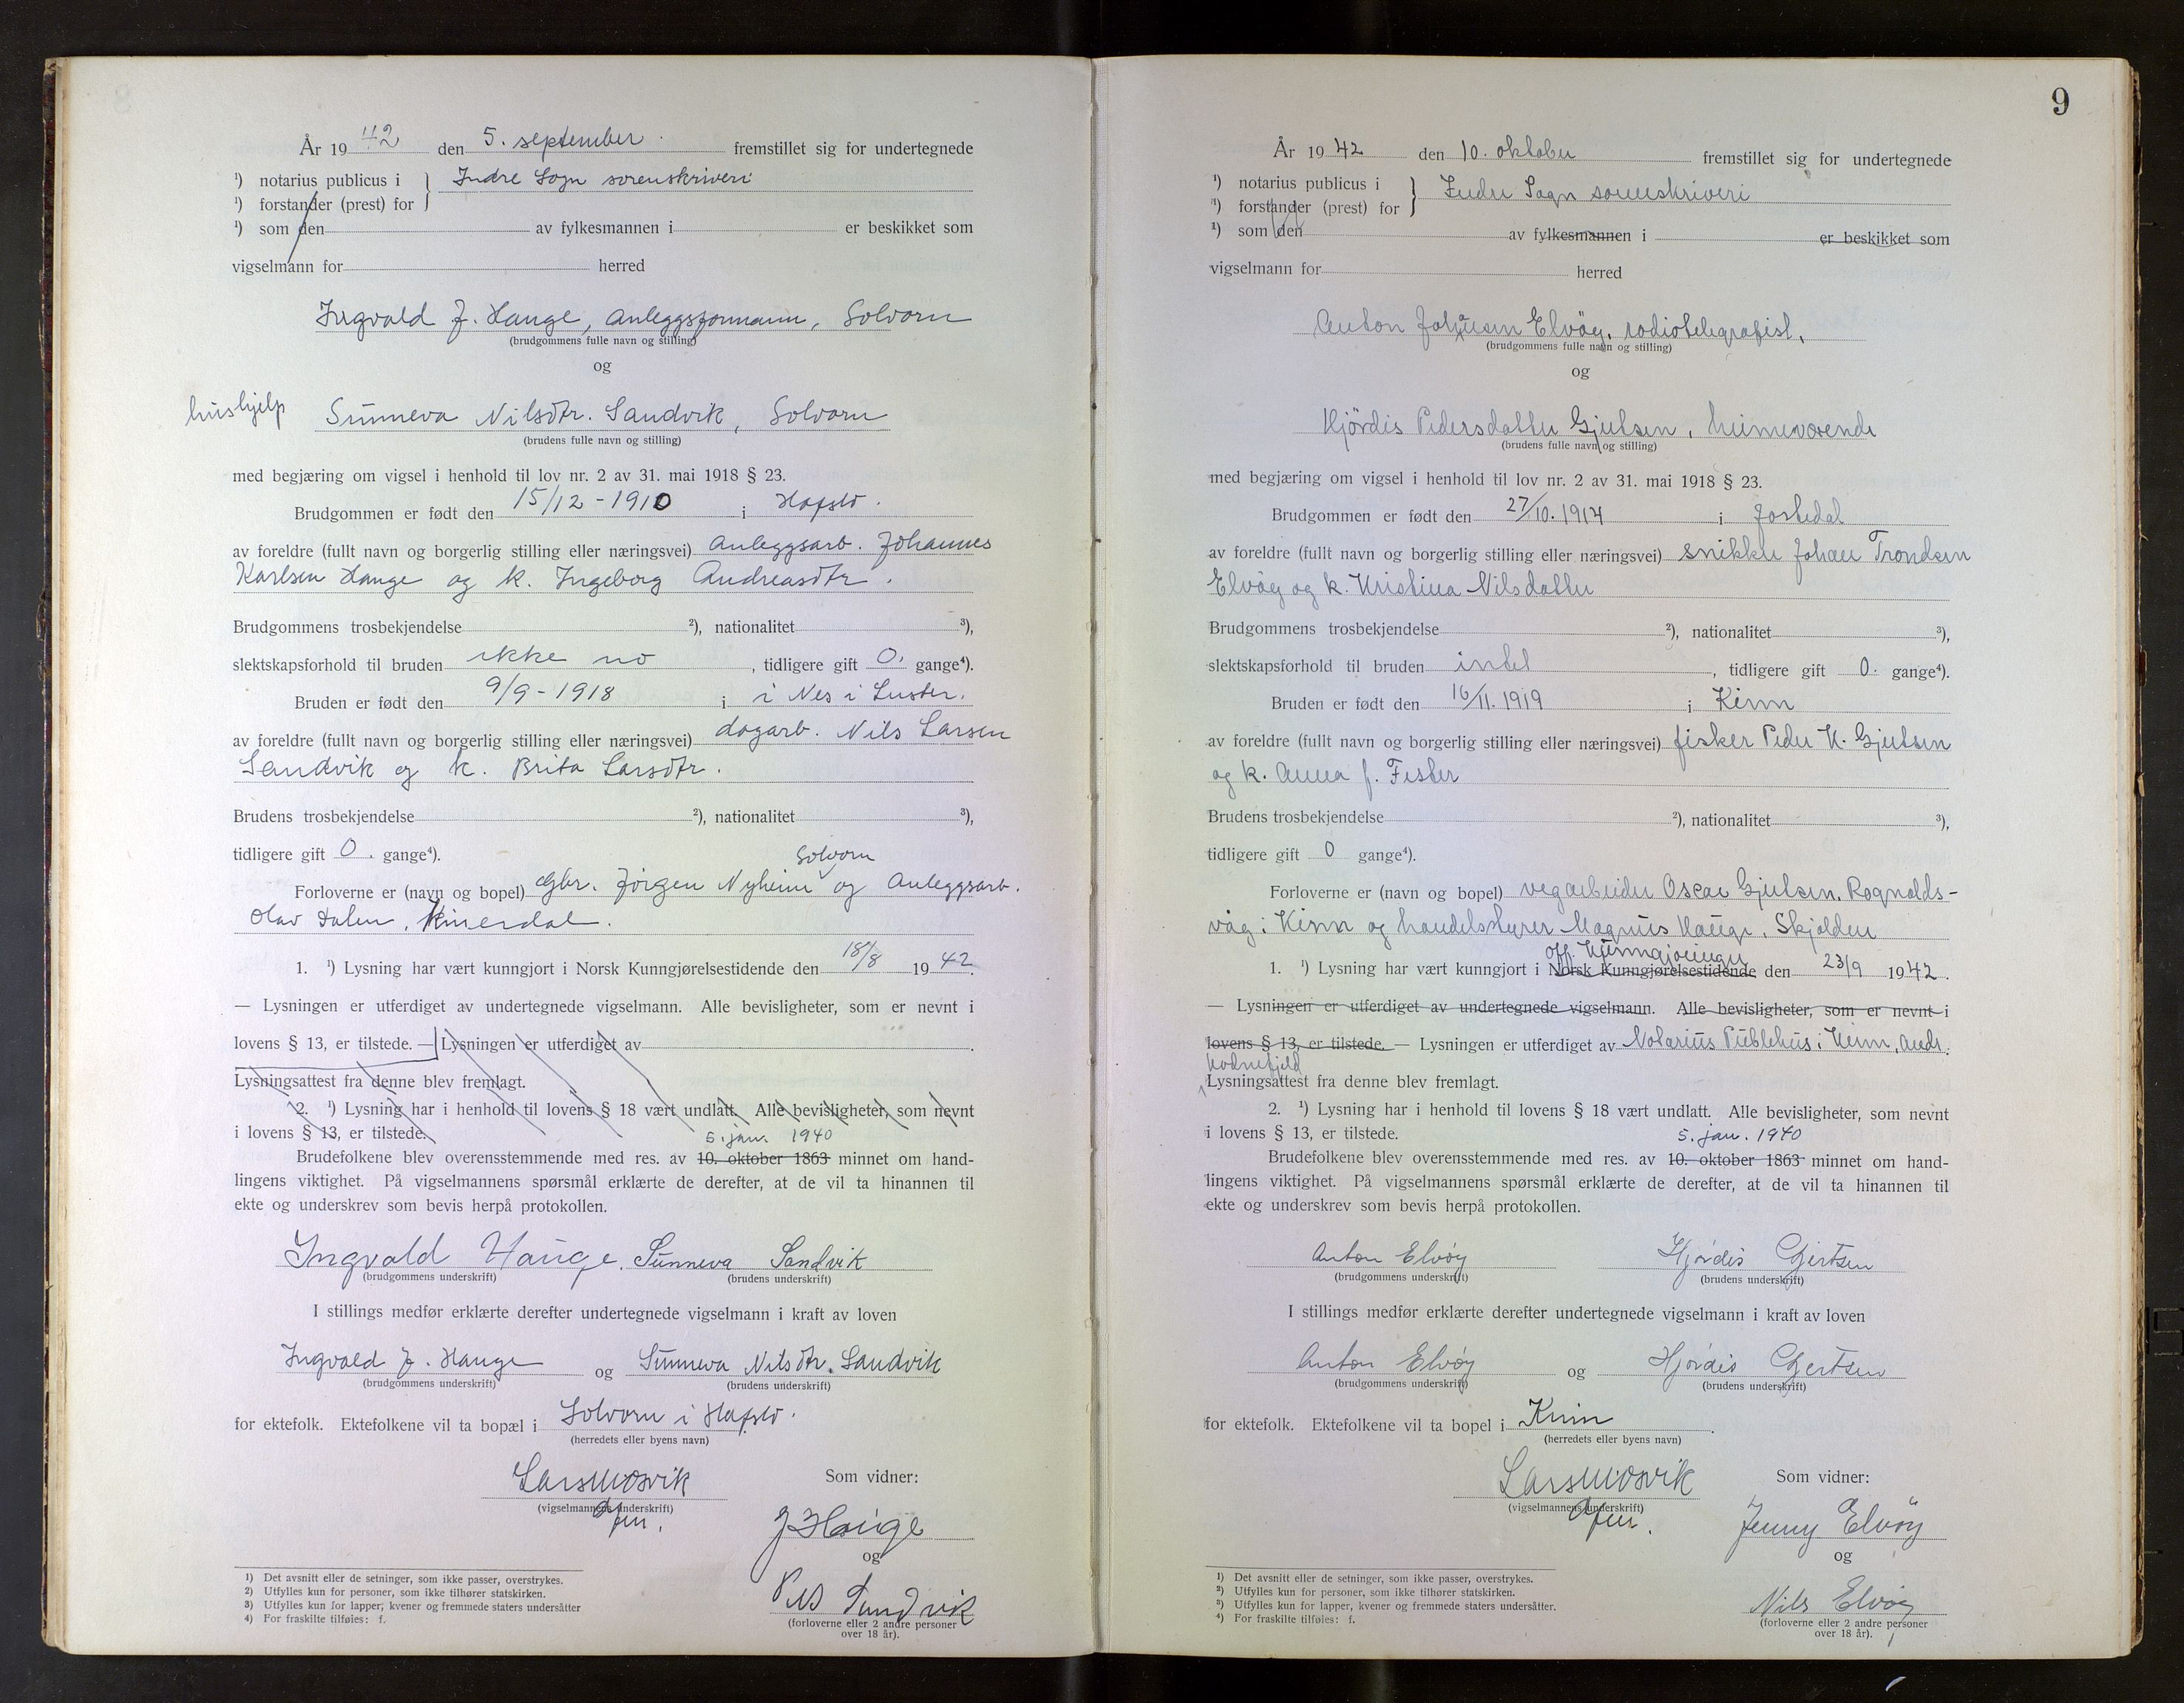 År 19 42 den 5. september fremstillet sig for undertegnede
¹) notarius publicus i } Indre Sogn sorenskriveri
¹) forstander (prest) for
¹) som den av fylkesmannen i er beskikket som
vigselmann for herred
Ingvald J. Hauge, anleggsformann, Solvorn
(brudgommens fulle navn og stilling)
og
hushjelp Sunneva Nilsdtr. Sandvik, Solvorn
(brudens fulle navn og stilling)
med begjæring om vigsel i henhold til lov nr. 2 av 31. mai 1918 § 23.
Brudgommen er født den 15/12 - 1910 i Hafslo.
av foreldre (fullt navn og borgerlig stilling eller næringsvei) anleggsarb. Johannes
Karlsen Hauge og k. Ingeborg Andreasdtr.
Brudgommens trosbekjendelse ²), nationalitet ³),
slektskapsforhold til bruden ikke no, tidligere gift 0. gange⁴).
Bruden er født den 9/9 - 1918 i i Nes i Luster.
av foreldre (fullt navn og borgerlig stilling eller næringsvei) dagarb. Nils Larsen
Sandvik og k. Brita Larsdtr.
Brudens trosbekjendelse ²), nationalitet ³),
tidligere gift 0. gange⁴).
Solvorn
Forloverne er (navn og bopel) Gbr. Jörgen Nyheim og anleggsarb.
Olav Dalen,
1. ¹) Lysning har vært kunngjort i Norsk Kunngjørelsestidende den 18/8 19 42.
— Lysningen er utferdiget av undertegnede vigselmann. Alle bevisligheter, som er nevnt i
lovens § 13, er tilstede. — Lysningen er utferdiget av .
Lysningsattest fra denne blev fremlagt.
2. ¹) Lysning har i henhold til lovens § 18 vært undlatt. Alle bevisligheter, som nevnt
i lovens § 13, er tilstede.
5. jan. 1940
Brudefolkene blev overensstemmende med res. av 10. oktober 1863 minnet om hand-
lingens viktighet. På vigselmannens spørsmål erklærte de derefter, at de vil ta hinannen til
ekte og underskrev som bevis herpå protokollen.
Ingvald Hauge. Sunneva Sandvik
(brudgommens underskrift) (brudens underskrift)
I stillings medfør erklærte derefter undertegnede vigselmann i kraft av loven
Ingvald J. Hauge og Sunneva Nilsdtr. Sandvik
(brudgommens underskrift) (brudens underskrift)
for ektefolk. Ektefolkene vil ta bopæl i Solvorn i Hafslo.
(herredets eller byens navn)
Lars Mosvik Som vidner:
(vigselmannens underskrift)
J Hauge
og
Sandvik
(forloverne eller 2 andre personer
over 18 år).
1) Det avsnitt eller de setninger, som ikke passer, overstrykes.
2) Utfylles kun for personer, som ikke tilhører statskirken.
3) Utfylles kun for lapper, kvener og fremmede staters undersåtter
4) For fraskilte tilføies: f.
9
År 19 42 den 10. oktober fremstillet sig for undertegnede
¹) notarius publicus i } Indre Sogn sorenskriveri
¹) forstander (prest) for
¹) som den av fylkesmannen i er beskikket som
vigselmann for herred
Anton Johansen Elvöy, radiotelegrafist,
(brudgommens fulle navn og stilling)
og
Hjördis Pedersdatter Gjertsen, heimeværende
(brudens fulle navn og stilling)
med begjæring om vigsel i henhold til lov nr. 2 av 31. mai 1918 § 23.
Brudgommen er født den 27/10. 1914 i Jostedal
av foreldre (fullt navn og borgerlig stilling eller næringsvei) snikker Johan Trondsen
Elvöy og k. Kristina Nilsdatter
Brudgommens trosbekjendelse ²), nationalitet ³),
slektskapsforhold til bruden intet, tidligere gift 0. gange⁴).
Bruden er født den 16/11. 1919 i Kinn
av foreldre (fullt navn og borgerlig stilling eller næringsvei) fisker Peder K. Gjertsen
og k. Anna f. Fester
Brudens trosbekjendelse ²), nationalitet ³),
tidligere gift 0 gange⁴).
Forloverne er (navn og bopel) vegarbeider Oscar Gjertsen, Rognalds-
våg i Kinn og handelsstyrer Magnus Hauge, Skjolden
off. kunngjøringer
1. ¹) Lysning har vært kunngjort i Norsk Kunngjørelsestidende den 23/9 19 42.
— Lysningen er utferdiget av undertegnede vigselmann. Alle bevisligheter, som er nevnt i
lovens § 13, er tilstede. — Lysningen er utferdiget av Notarius Publikus i Kinn, Andr.
Kodnefjeld
Lysningsattest fra denne blev fremlagt.
2. ¹) Lysning har i henhold til lovens § 18 vært undlatt. Alle bevisligheter, som nevnt
i lovens § 13, er tilstede.
5. jan. 1940
Brudefolkene blev overensstemmende med res. av 10. oktober 1863 minnet om hand-
lingens viktighet. På vigselmannens spørsmål erklærte de derefter, at de vil ta hinannen til
ekte og underskrev som bevis herpå protokollen.
Anton Elvöy Hjördis Gjertsen
(brudgommens underskrift) (brudens underskrift)
I stillings medfør erklærte derefter undertegnede vigselmann i kraft av loven
Anton Elvöy og Hjördis Gjertsen
(brudgommens underskrift) (brudens underskrift)
for ektefolk. Ektefolkene vil ta bopel i Kinn.
(herredets eller byens navn)
Lars Mosvik Som vidner:
(vigselmannens underskrift)
Jenny Elvöy
og
Nils Elvöy
(forloverne eller 2 andre personer
over 18 år).
1) Det avsnitt eller de setninger, som ikke passer, overstrykes.
2) Utfylles kun for personer, som ikke tilhører statskirken.
3) Utfylles kun for lapper, kvener og fremmede staters undersåtter.
4) For fraskilte tilføies: f.